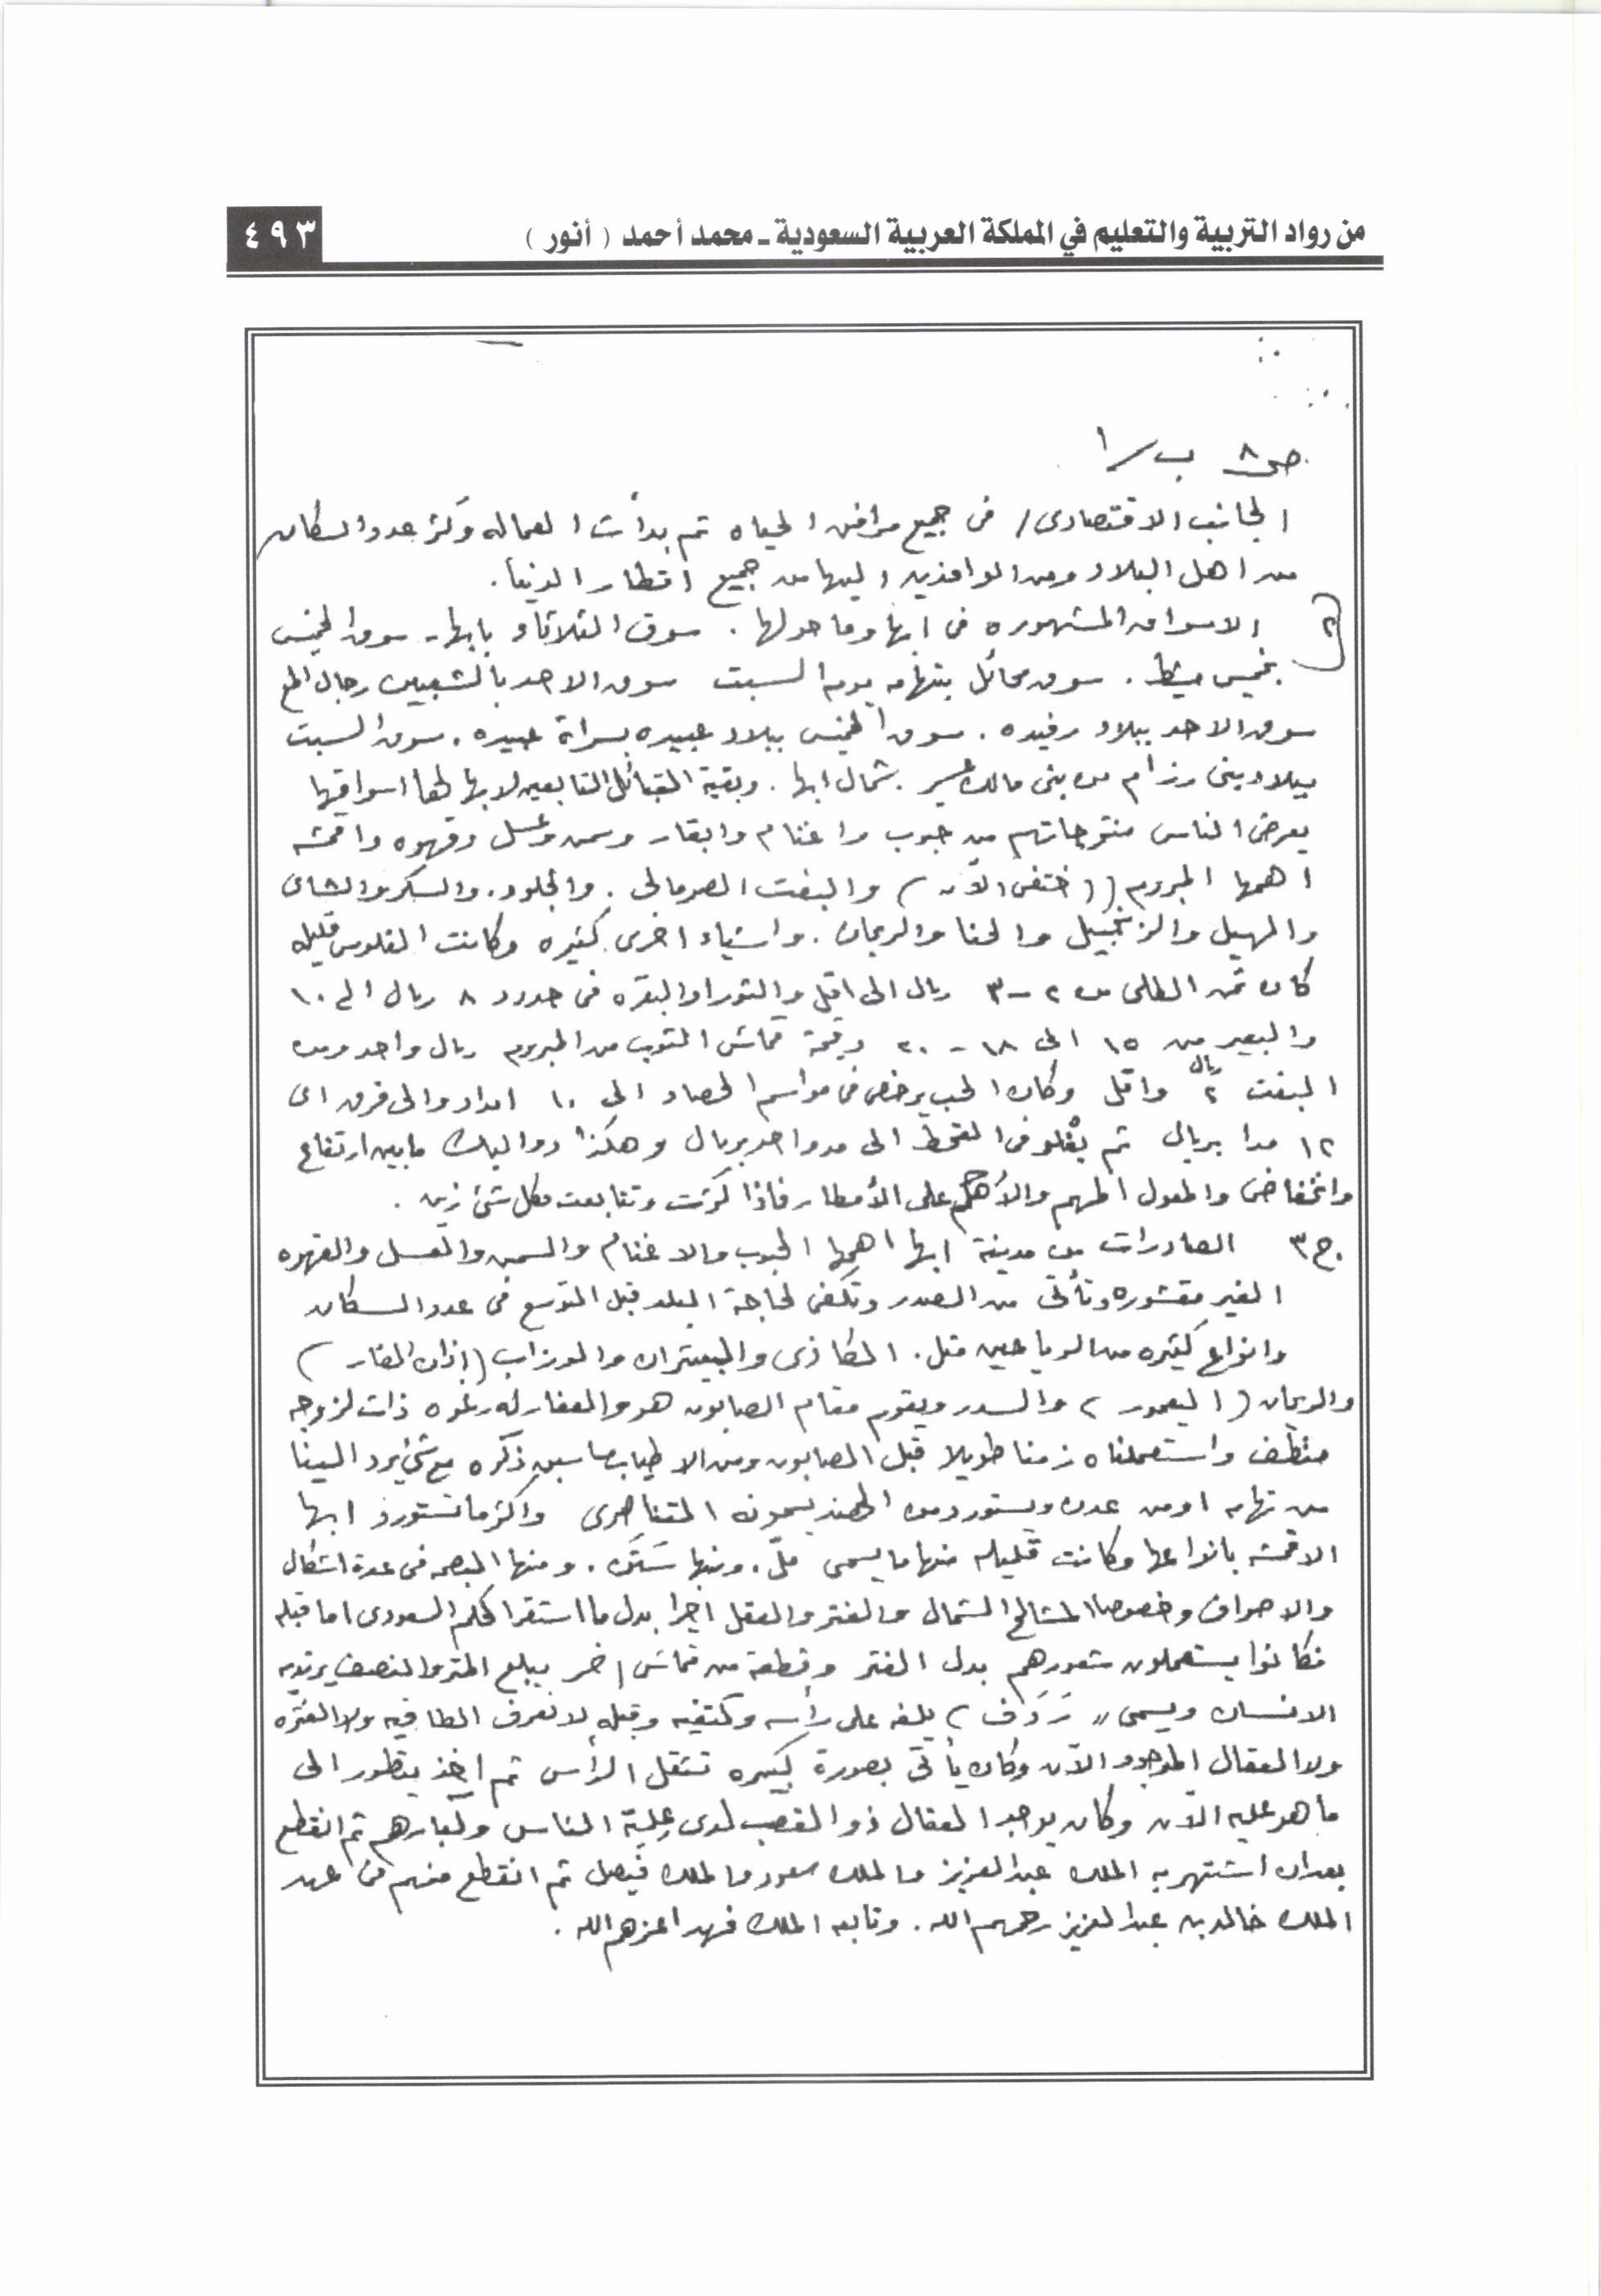 من رواد التربية والتعليم في المملكة العربية السعودية ـ محمد أحمد ( أنور )
٤٩٣
ص٨ ب/١
الجانب الاقتصادى / فى جميع مرافق الحياه ثم بدأت العماله وكثر عدد السكان
من اهل البلاد ومن الوافدين اليها من جميع اقطار الدنيا .
٢ الاسواق المشهوره فى ابها وما حولها . سوق الثلاثاء بابها - سوق الخميس
بخميس مشيط . سوق محائل بتهامه يوم السبت سوق الاحد بالشعبين رجال المع
سوق الاحد ببلاد رفيده . سوق الخميس ببلاد عبيده بسراة عبيده . سوق السبت
ببلاد بنى رزام من بنى مالك عسير . شمال ابها . وبقية القبائل التابعين لابها لها اسواقها
يعرض الناس منتوجاتهم من حبوب واغنام وابقار وسمن وعسل وقهوه واقمشه
اهمها المبروم ( اختفى الآن ) والبفت الصومالى . والجلود . والسكر والشاى
والهيل والزنجبيل والحنا والريحان . واشياء اخرى كثيره وكانت الفلوس قليله
كان ثمن الطلى من ٢ - ٣ ريال الى اقل والثور او البقره فى حدود ٨ ريال الى ١٠
والبعير من ١٥ الى ١٨ - ٢٠ وقيمة قماش الثوب من المبروم ريال واحد ومن
البفت ٢ ريال واقل وكان الحب يرخص فى مواسم الحصاد الى ١٠ امداد والى فرق اى
١٢ مدا بريال ثم يغلو فى القحط الى مد واحد بريال وهكذا دواليك مابين ارتفاع
وانخفاض والمعول المهم والأهم على الأمطار فاذا كثرت وتتابعت فكل شئ زين .
ج٣ الصادرات من مدينة ابها اهمها الحبوب والاغنام والسمن والعسل والقهوه
الغير مقشوره وتأتى من الصدر وتكفى لحاجة البلد قبل التوسع فى عدد السكان
وانواع كثيره من الرياحين مثل . الكاذى والبعيثران والوزاب ( اذان الفار )
والريحان ( ) والسدر ويقوم مقام الصابون هو والغفار له رغوه ذات لزوجه
منظف واستعملناه زمنا طويلا قبل الصابون ومن الاطياب ما سبق ذكره مع شئ يرد الينا
من تهامه او من عدن ويستورد من الهند يسمونه واكثر ما تستورد ابها
الاقمشه بانواعها وكانت قليله منها ما يسمى ملّ . ومنها . ومنها البصمه فى عدة اشكال
والاصواف وخصوصا المشالح الشمال والغتر والعقل اخيرا بدل ما استقر الحكم السعودى اما قبله
فكانوا يستعملون شعورهم بدل الغتر وقطعة من قماش اخر يبلغ المتر والنصف يرتديه
الانسان ويسمى " رَدَف " يلفه على رأسه وكتفيه وقبله لا نعرف الطاقيه ولا الغتره
ولا العقال الموجود الآن وكان يأتى بصورة كبيره تثقل الرأس ثم اخذ يتطور الى
ما هو عليه الآن وكان يوجد العقال ذو القصب لدى عِلْيَة الناس وكبارهم ثم انقطع
بعد ان اشتهر به الملك عبدالعزيز والملك سعود والملك فيصل ثم انقطع منهم فى عهد
الملك خالد بن عبدالعزيز رحمهم الله . وتابعه الملك فهد اعزهم الله .